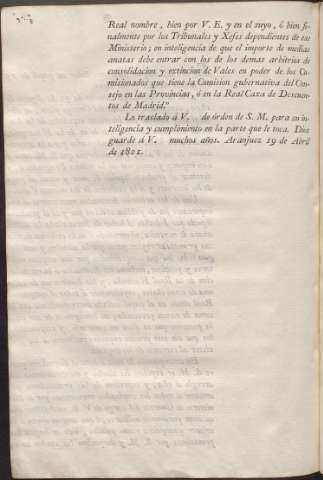 Real nombre, bien por V. E. y en el suyo, ó bien fi-
nalmente por los Tribunales y Xefes dependientes de ese
Ministerio; en inteligencia de que el importe de medias
anatas debe entrar con los de los demas arbitrios de
consolidacion y extincion de Vales en poder de los Co-
misionados que tiene la Comision gubernativa del Con-
sejo en las Provincias, ó en la Real Caxa de Descuen-
tos de Madrid."
Lo traslado á V. de órden de S. M. para su in-
teligencia y cumplimiento en la parte que le toca. Dios
guarde á V. muchos años. Aranjuez 19 de Abril
de 1801.